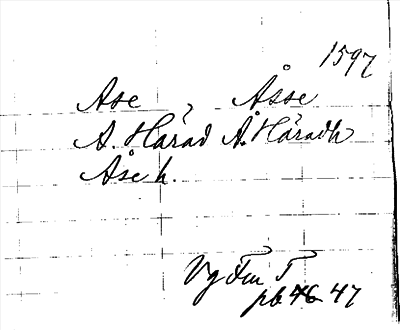 1597
Ase , Åsse
A. Härad Å. Häradh
Åse h.
Vg Fm T
pb 46 47